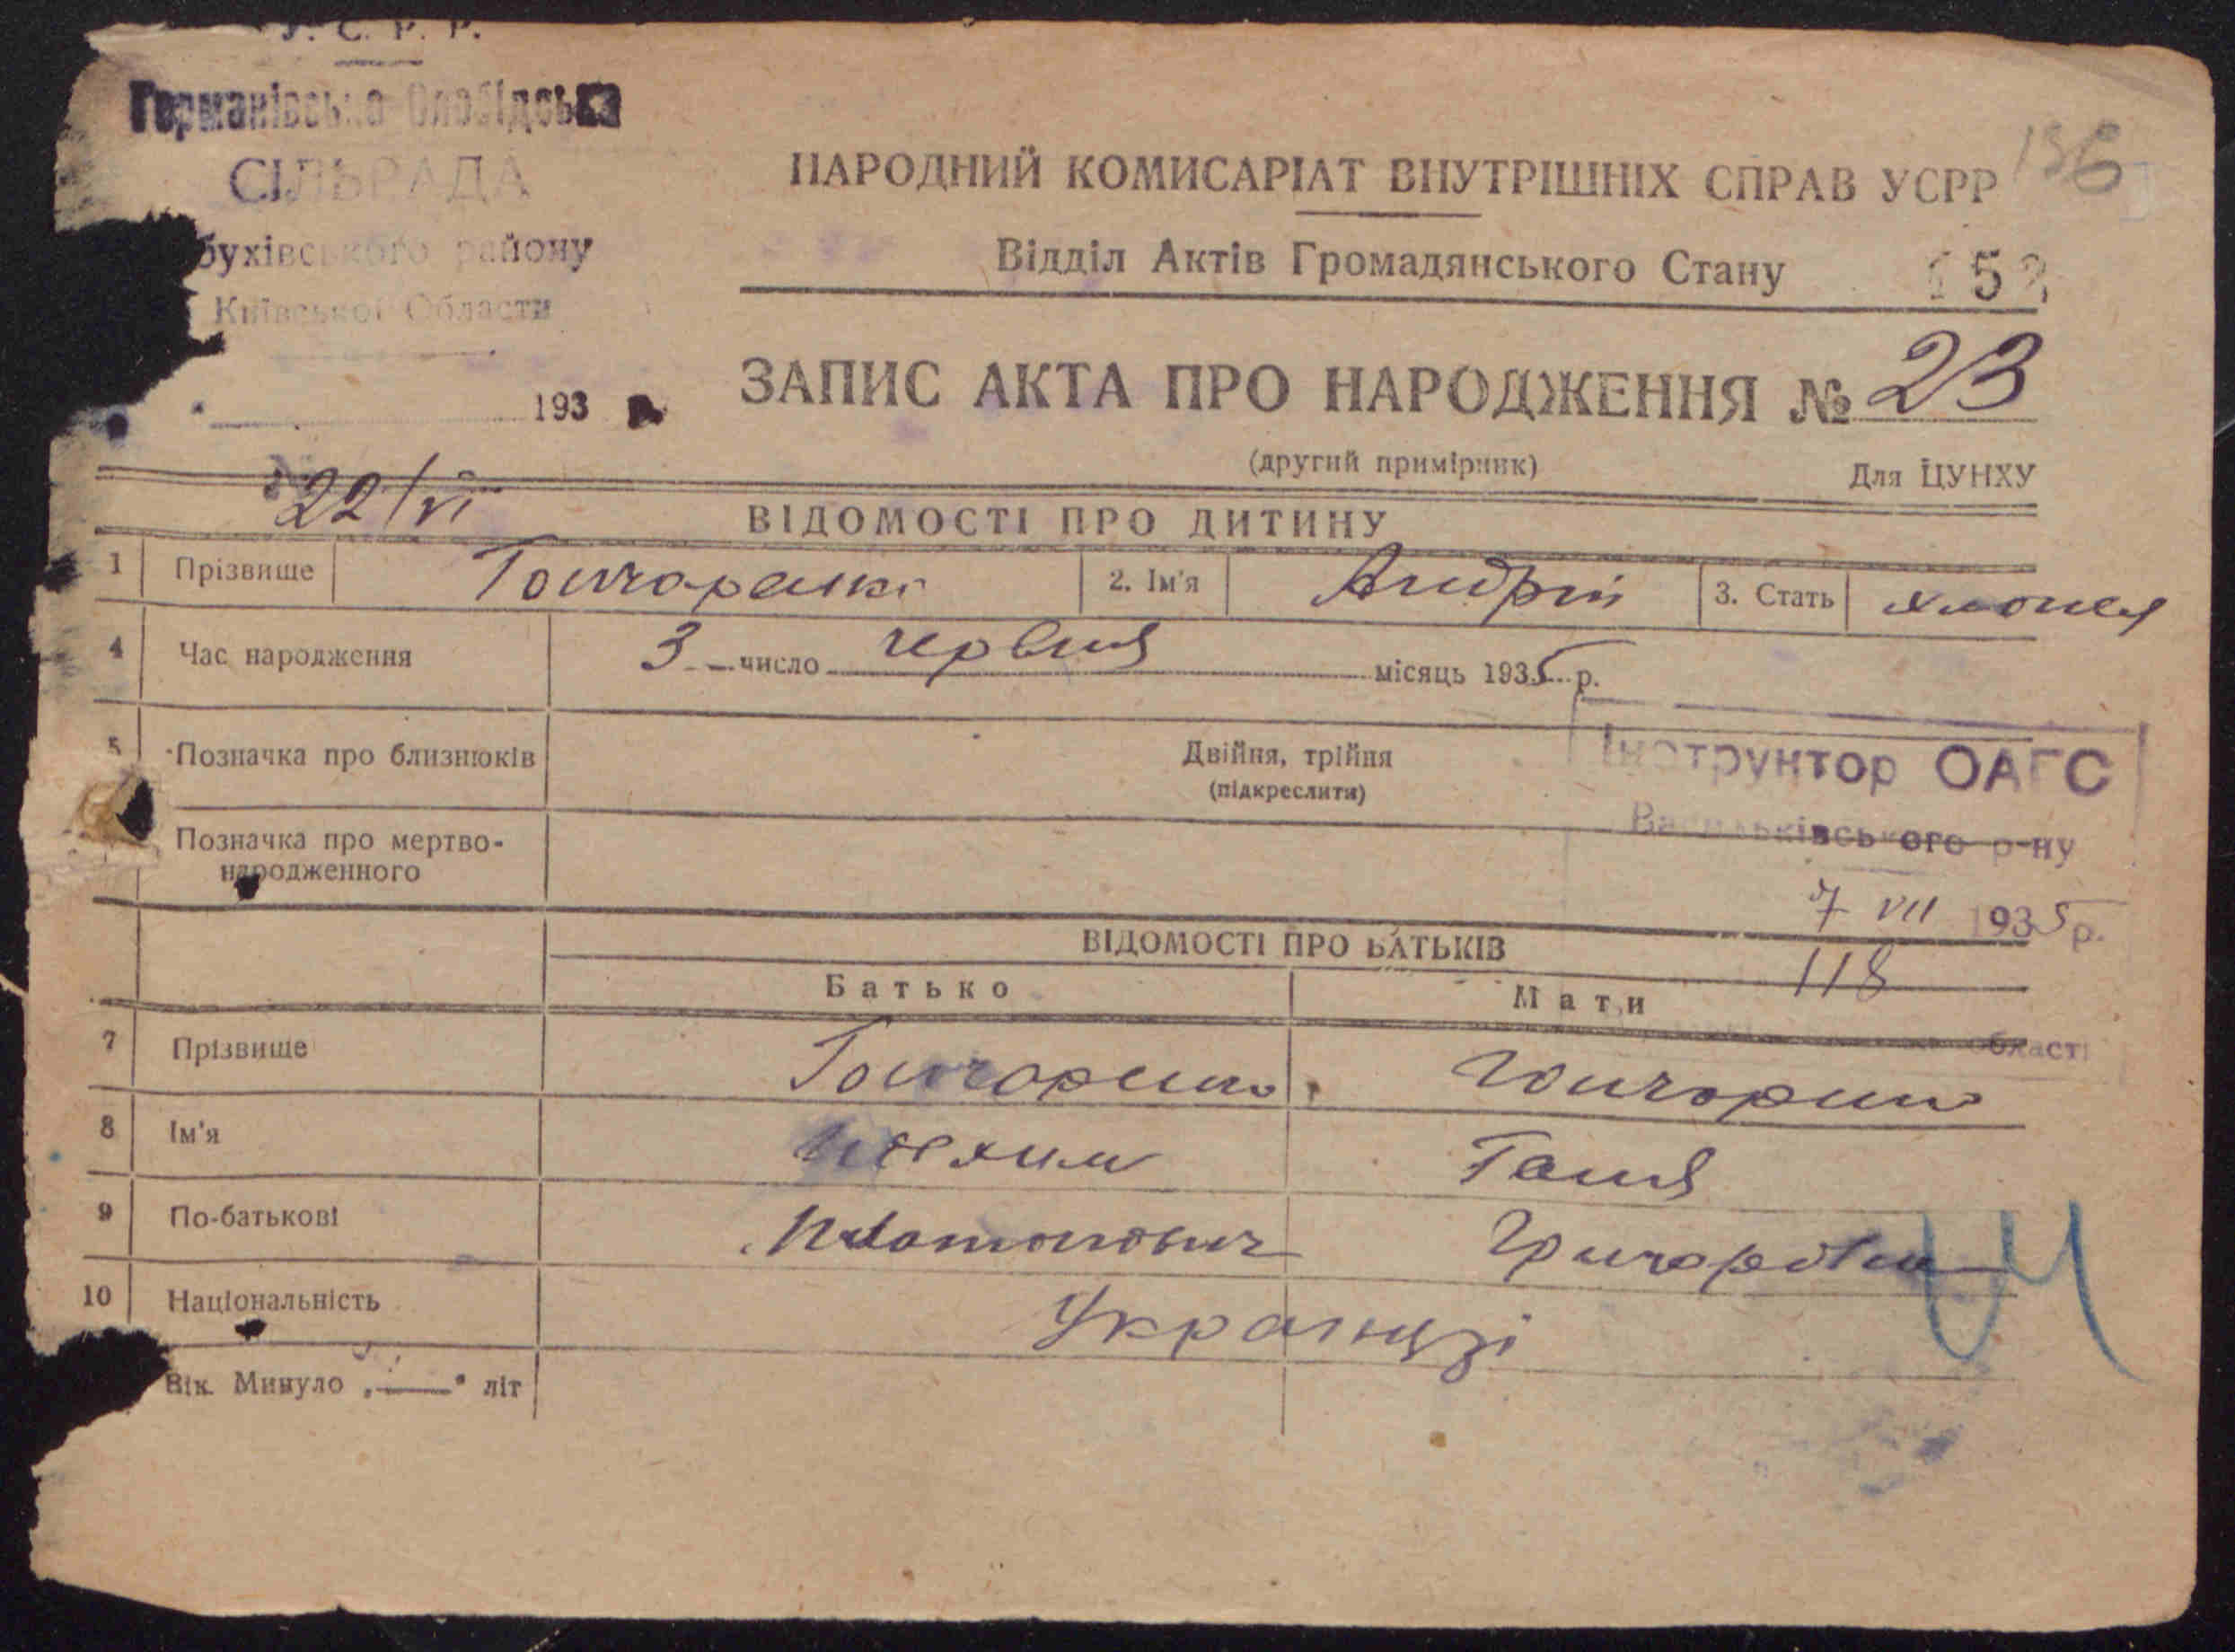 У. С. Р. Р.
Германівсько Слобідська
СІЛЬРАДА
бухівського району
Київської Области
193 р.
НАРОДНИЙ КОМИСАРІАТ ВНУТРІШНІХ СПРАВ УСРР 156
Відділ Актів Громадянського Стану 152
ЗАПИС АКТА ПРО НАРОДЖЕННЯ № 23
(другий примірник) Для ЦУНХУ
22/VI
ВІДОМОСТІ ПРО ДИТИНУ
1 Прізвище Гончаренко 2. Ім'я Андрій 3. Стать хлопец
4 Час народження 3 число червня місяць 1935 р.
5 Позначка про близнюків Двійня, трійня
(підкреслити)
Інструктор ОАГС
Васильківського р-ну
Позначка про мертво-
народженного
7 VII 1935 р.
ВІДОМОСТІ ПРО БАТЬКІВ
118
Батько Мати
області
7 Прізвище Гончоренко Гончоренко
8 Ім'я Ганя
9 По-батькові Платонович Григоровна
10 Національність Українці
Вік. Минуло „—" літ